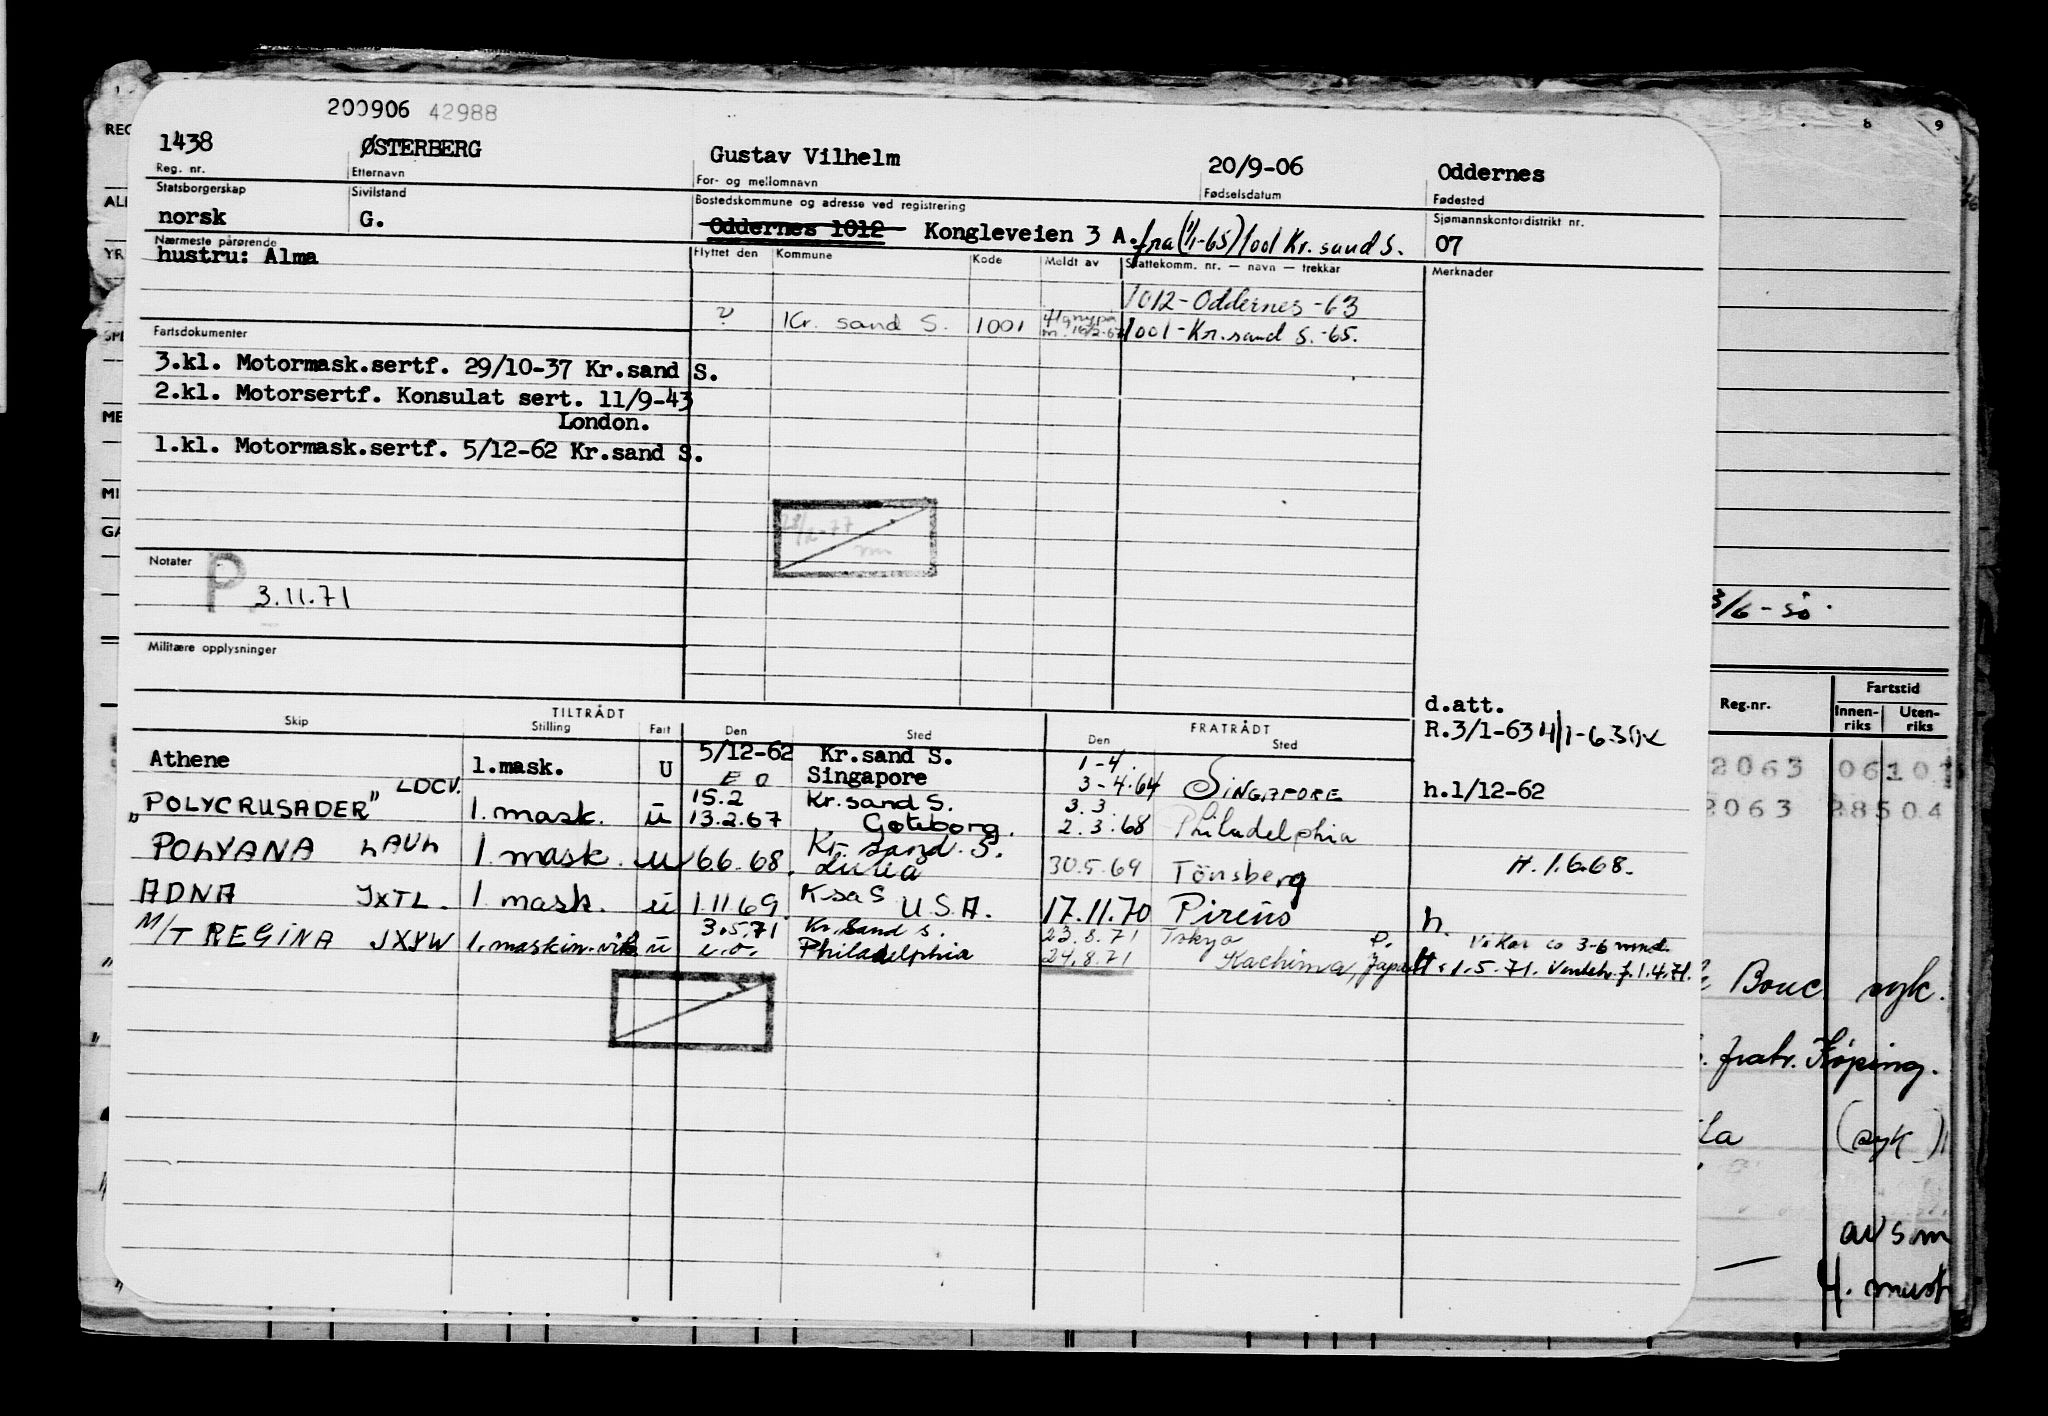 200906 42988
1438 ØSTERBERG Gustav Vilhelm 20/9-06 Oddernes
Reg. nr. Etternavn For- og mellomnavn Fødselsdatum Fødested
Statsborgerskap Sivilstand Bostedskommune og adresse ved registrering Sjømannskontordistrikt nr.
norsk G. Oddernes 1012 Kongleveien 3 A. fra (1/1-65) 1001 Kr. sand S. 07
Nærmeste pårørende Flyttet den Kommune Kode Meldt av Skattekomm. nr. — navn — trekkar Merknader
hustru: Alma
1012-Oddernes-63
? Kr. sand S. 1001 1001-Kr.sand S.-65.
Fartsdokumenter
3.kl. Motormask.sertf. 29/10-37 Kr.sand S.
2.kl. Motorsertf. Konsulat sert. 11/9-43
London.
1.kl. Motormask.sertf. 5/12-62 Kr.sand S.
Notater
P 3.11.71
Militære opplysninger
d.att.
TILTRÅDT FRATRÅDT R.3/1-63
Skip Stilling Fart Den Sted Den Sted
Athene 1.mask. U 5/12-62 Kr.sand S. 1-4.
E O Singapore 3-4.64 SINGAPORE h.1/12-62
"POLYCRUSADER" LDCV. 1. mask. u 15.2 Kr.sand S. 3.3
13.2.67 Göteborg. 2.3.68 Philadelphia
POLYANA LAVL 1. mask. u 6.6.68. Kr. sand. S.
Luleå 30.5.69 Tönsberg H. 1.6.68.
ADNA JXTL. 1. mask. u 1.11 69. Ksa S U.S.A. 17.11.70 Pireus h.
M/T REGINA JXYW 1. maskin.vik u 3.5.71 Kr. Sand S. 23.8.71 Tokyo P.
e.o. Philadelphia 24.8.71 Kachima, Japan H. 1.5.71.
8 9
3/6-50.
Reg.nr. Fartstid
Innen-riks Uten-riks
2063
2063
Bouc. syk.
fratr. Köping.
(syk)
avs.m
4. must